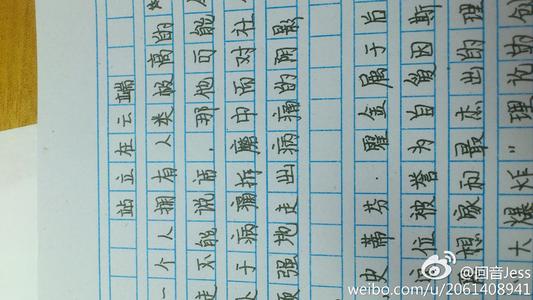 站立在云端
一个人拥有人类极高的
不能说话，那他可能
于病痛折磨中而对社
顽强地走出病痛的阴影
史蒂芬.瞿金属于后
位被誉为自爱因斯
想家和最杰出的理
大爆炸"理论的创
@回音Jess
weibo.com/u/2061408941